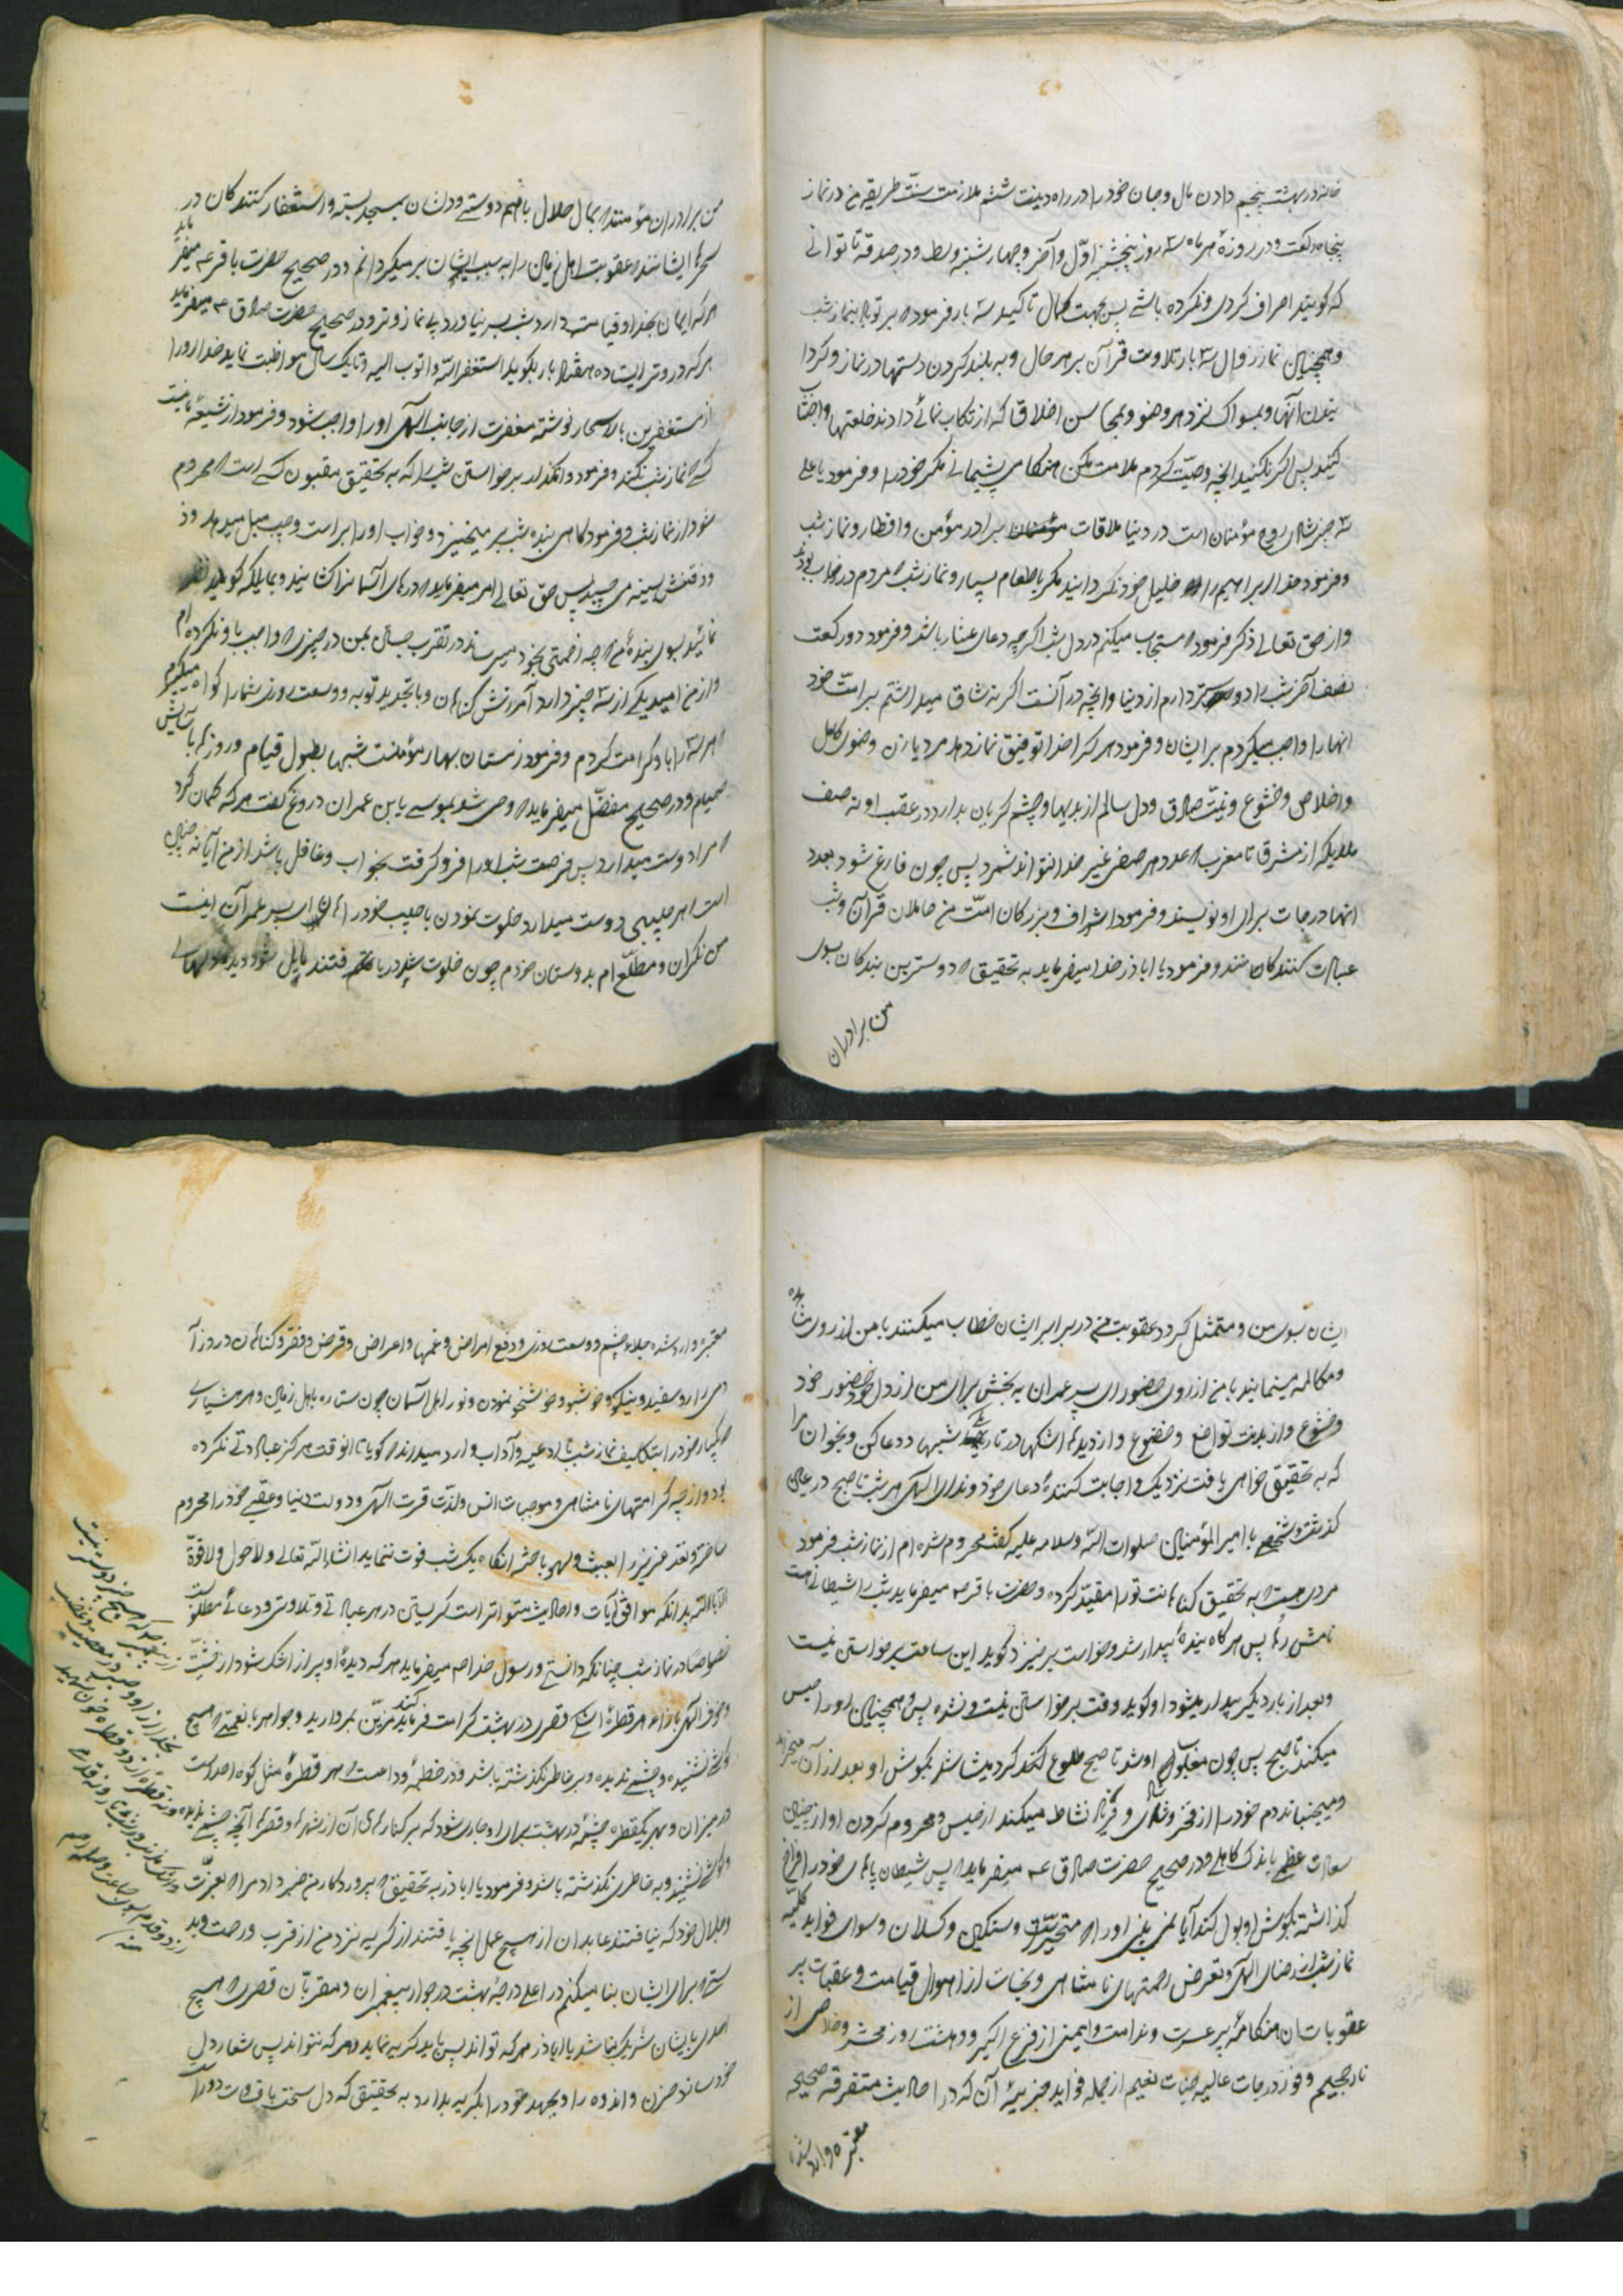 خانه در بهشت پنجم دادن مال و جان خود را در راه دینت ششم ملازمت سنّت طریقه من در نماز
پنجاه رکعت و در روزهٔ هر ماه سه روز پنجشنبه اوّل و آخر و چهارشنبه وسط و در صدقه تا توانی
که گویند اسراف کردی و نکرده باشی پس بجهت کمال تاکید سه بار فرمود که بر تو باد بنماز شب
و همچنین نماز زوال سه بار تلاوت قرآن بر هر حال و به بلند کردن دستها در نماز و گردا
نیدن آنها و بمسواک نزد هر وضو و بمحاسن اخلاق که ارتکاب نمائی و از بد خلقتها واجتناب
کنید پس اگر نکنید آنچه وصیّت کردم ملامت مکن هنگام پشیمانی مگر خود را و فرمود یا علی
سه چیز شادی روح مؤمنان است در دنیا ملاقات برادر مؤمن و افطار و نماز شب
و فرمود خدا ابراهیم را خلیل خود نگردانید مگر باطعام بسیار و نماز شب که مردم در خواب بودند
و از حق تعالی ذکر فرمود که مستجاب میکنم در دل شب اگرچه دعای عشار باشد و فرمود دو رکعت
نصف آخر شب را دوستر دارم از دنیا و آنچه در آنست اگر نه شاق میدانستم بر امّت خود
انها را واجب میکردم بر ایشان و فرمود هر کرا خدا توفیق نماز دهد مرد یا زن وضوی کامل
و اخلاص و خشوع و نیّت صادق و دل سالم از بدیها و چشم گریان بدارد در عقب او نه صف
ملایکه از مشرق تا مغرب که عدد هر صفی غیر خدا نتواند شمرد پس چون فارغ شود بعدد
انها درجات برای او نویسند و فرمود اشراف و بزرگان امّت من حاملان قرآن و شب
عبادت کنندگان هستند و فرمود یا اباذر خدا میفرماید به تحقیق که دوسترین بندگان بسوی
من برادران
من برادران مؤمنند که بمال حلال باهم دوستی و دلشان بمسجد بسته و استغفار کنندگان در
سحرها ایشانند که عقوبت اهل زمین را به سبب ایشان بر میگردانم و در صحیح حضرت باقر ع میفرماید
هر که ایمان بخدا و قیامت دارد شب بسر نیاورد بی نماز وتر و در صحیح حضرت صادق ع میفرماید
هر که در وتر ایستاده هفتاد بار بگوید استغفر الله و اتوب الیه و تا یک سال مواظبت نماید خدا او را
از مستغفرین بالاسحار نوشته مغفرت از جانب الهی او را واجب شود و فرمود از شیعهٔ ما نیست
کسی که نماز شب نکند و فرمود وامگذار برخواستن شب را که به تحقیق مغبون کسی است که محروم
شود از نماز شب و فرمود گاهی بنده شب بر میخیزد و خواب او را براست و چپ میل میدهد و ذ
و ذقنش بسینه می چسپد پس حق تعالی امر میفرماید که درهای آسمانرا گشایند و بملایکه گوید نظر
نمائید بسوی بندهٔ من که چه زحمتی بخود میرساند در تقرب جستن بمن در چیزی که واجب باو نکرده ام
و از من امید یکی از سه چیز دارد آمرزش گناهان و یا تجدید توبه و وسعت روزی شما را گواه میگیرم
که هر سه را باو کرامت کردم و فرمود زمستان بهار مؤمنست شبها بطول قیام و روزها باسایش
صیام و در صحیح مفضّل میفرماید که وحی شد بموسی یا بن عمران دروغ گفت هر که گمان کرد
که مرا دوست میدارد پس فرصت شب او را فرو گرفت بخواب و غافل باشد از من آیا نه چنین
است که هر حبیبی دوست میدارد خلوت نمودن با حبیب خود را ای پسر عمران اینست
من نگران و مطلّع ام بدوستان خودم چون خلوت شب دریافتند مایل شود دیدهٔ دلهای
ایشان بسوی من و متمثل گردد عقوبت من در برابر ایشان خطاب میکنند با من از روی مشاهده
و مکالمه مینمایند با من از روی حضور ای پسر عمران به بخش برای من از دل خود حضور خود
و خشوع و از بدنت تواضع و خضوع و از دیدها اشکها در تاریکی شبها و دعا کن و بخوان مرا
که به تحقیق خواهی یافت نزدیک و اجابت کنندهٔ دعای خود و ندای الهی هر شب تا صبح در عین
گذشت و شخصی با امیر المؤمنین صلوات الله و سلامه علیه گفت محروم شده ام از نماز شب فرمود
مردی هستی که به تحقیق گناهانت تو را مقیّد کرده و حضرت باقر ع میفرماید شب را شیطانی هست
نامش رُها پس هر گاه بندهٔ بیدار شد و خواست برخیزد گوید این ساعت برخواستن نیست
و بعد از بار دیگر بیدار میشود او گوید وقت برخواستن نیست و نشده پس و همچنین او را حبس
میکند تا صبح پس چون مغلوب او شد تا صبح طلوع کند کرد میشاشد بگوش او و بعد از آن میخرامد
و میجنباند دم خود را از فخر و شادی و نشاط میکند از حبس و محروم کردن او از چنین
سعادت عظمی باندک کاهلی و در صحیح حضرت صادق ع میفرماید که پس شیطان پاهای خود را فراخ
گذاشته بگوش او بول کند آیا نمی بینی او را که متحیّر و سنگین و کسلان و سوای فواید کلّیه
نماز شب از رضای الهی و تعرض رحمتهای نامتناهی و نجات از اهوال قیامت و عقبات پر
عقوبات آن هنگامهٔ پر عسرت و ندامت و ایمنی از فزع اکبر و دهشت روز محشر و خلاصی از
نار جحیم و فوز درجات عالیه جنات نعیم از جمله فواید جزئیهٔ آن که در احادیث متفرقه صحیحه
معتبره وارد شده
معتبره وارد شده جلاء چشم و وسعت روزی و دفع امراض و غمها و اعراض و قرض و فقر و گناهان در روز آ
دمی را رو سفید و نیکو و خوشبو و خوشخو نمودن و نور اهل آسمان چون ستاره باهل زمین و هر هشیاری
که یکبار خود را بتکلیف نماز شب با ادعیه و آداب وارد میداند که گویا تا انوقت هرگز عبادتی نکرده
بود و از چه کرامتهای نامتناهی و موجبات انس و لذّت قرب الهی و دولت دنیا و عقبی خود را محروم
ساخته و نقد عزیز را بعبث و لهو باخته آنگاه یک شب فوت ننماید انشاء الله تعالی و لاحول و لا قوّة
الا بالله بدانکه موافق آیات و احادیث متواتر است گریستن در هر عبادتی و تلاوتی و دعائی مطلوبست
خصوصا در نماز شب چنانکه دانستی و رسول خدا ص میفرماید هر که دیدهٔ او پر از اشک شود از خشیت
و خوف الهی بازاء هر قطرهٔ اشکی قصری در بهشت کرامت فرماید مزیّن بمروارید و جواهر با نعمتی که هیچ
گوشی نشنیده و چشمی ندیده و بر خاطر نگذشته باشد و در خطبهٔ وداعست که هر قطرهٔ مثل کوه احد است
در میزان و بهر یکقطره چشمهٔ در بهشت برای او جاری شود که بر کنارهای آن از شهرها و قصرها آنچه چشمی ندیده
و گوشی نشنیده و به خاطری نگذشته باشد و فرمود یا اباذر به تحقیق که پروردگار من خبر داد مرا که بعزت
و جلال خود که نیافتند عابدان از هیچ عمل آنچه یافتند از گریه نزد من از قرب و رحمت و بد
ستی که برای ایشان بنا میکنم در اعلی درجهٔ بهشت در جوار پیغمبران و مقربان قصری که هیچ
احدی بایشان شریک نباشد یا اباذر هر که تواند پس باید گریه نماید و هر که نتواند پس شعار دل
خود سازد حزن و اندوه را و بجهد خود را بگریه بدارد به تحقیق که دل سخت با قساوت دور است